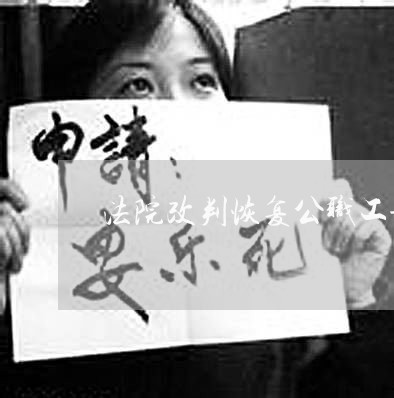 申請:
法院改判恢复公職工
要乐死